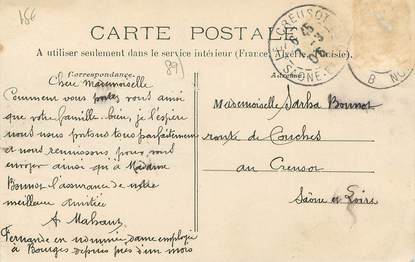 156
CARTE POSTALE
A utiliser seulement dans le service intérieur (France, Algérie, Tunisie).
89
Correspondance
Adresse
LE CREUSOT
Chère Mademoiselle
Comment vous portez vous ainsi
que votre famille bien, je l'espère
nous nous portons tous parfaitement
et nous réunissons pour vous
envoyer ainsi qu'à Madame
Bonnot l'assurance de notre
meilleure amitiée
A
Fernande en nommée dame employée
à Bourges depuis près d'un mois
Mademoiselle Sarha Bonnot
route de Couches
au Creusot
Saône et Loire